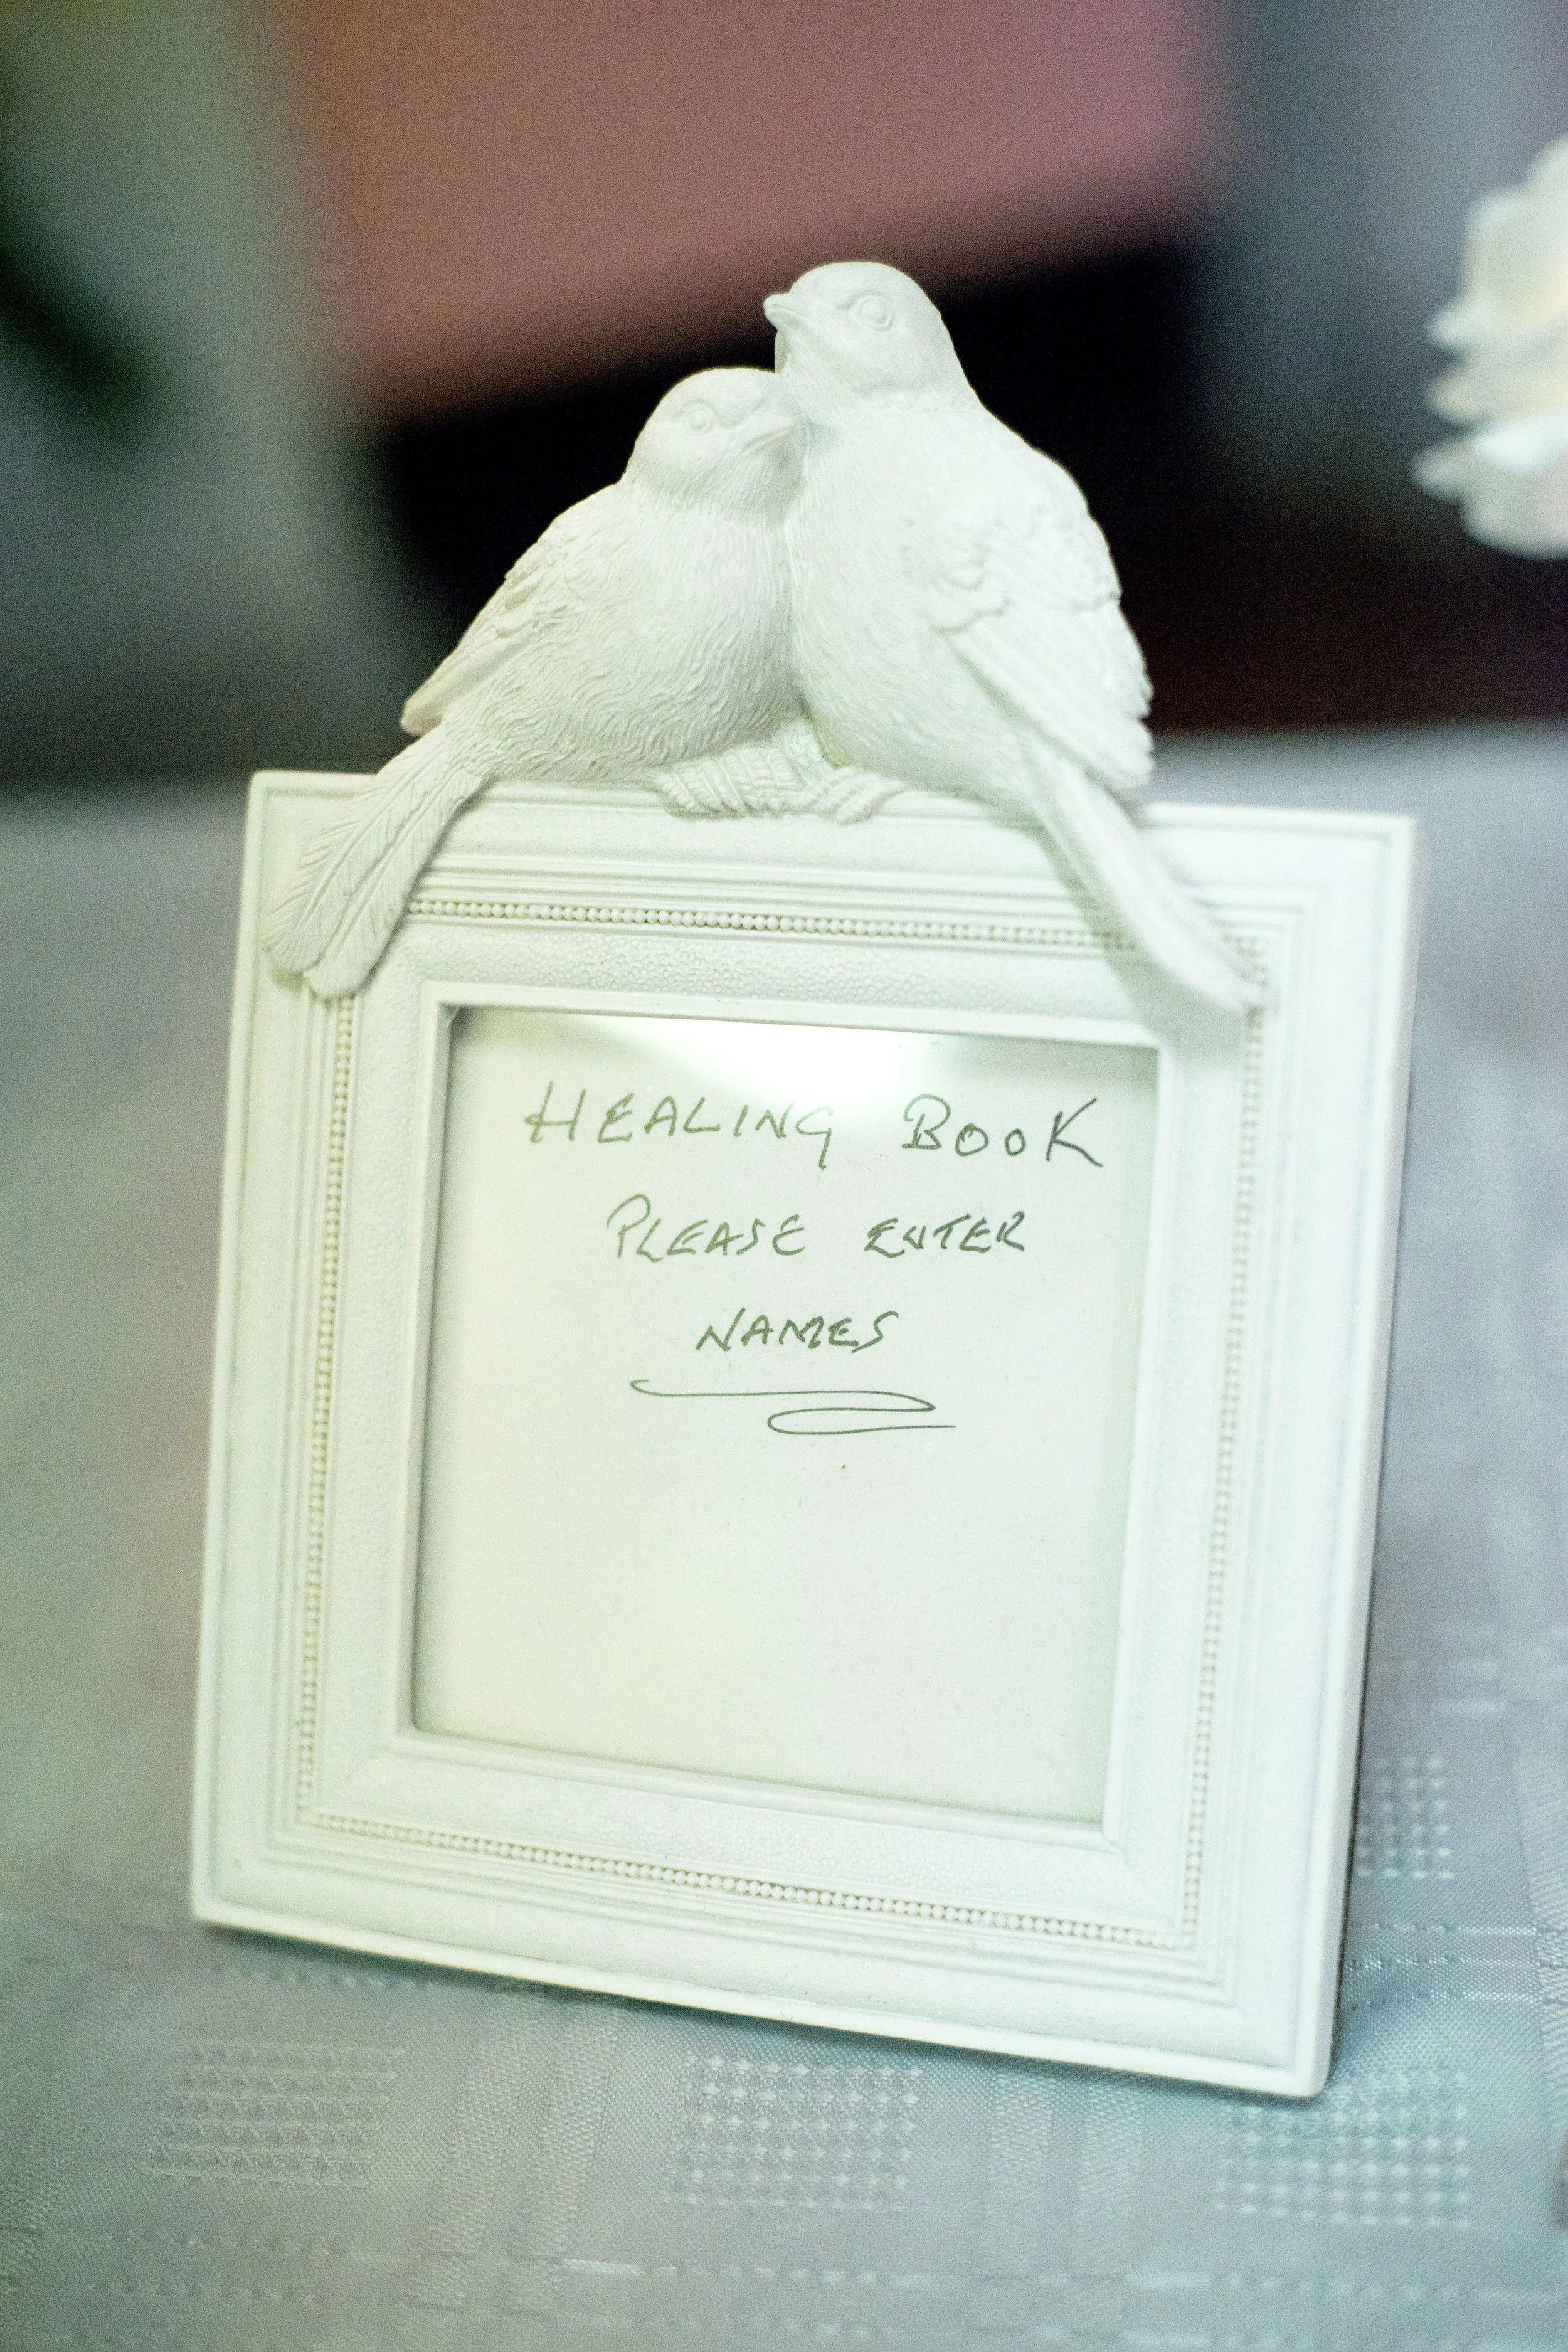 HEALING BOOK
PLEASE ENTER
NAMES